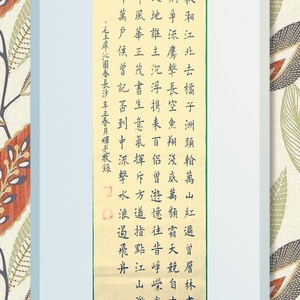 湘江北去橘子洲頭看萬山紅遍層林
爭流鷹擊長空魚翔淺底萬類霜天競自
地誰主沉浮攜來百侶曾遊憶往昔崢嶸
風華正茂書生意氣揮斥方遒指點江山
萬戶侯曾記否到中流擊水浪遏飛舟
毛主席沁園春長沙辛丑春月